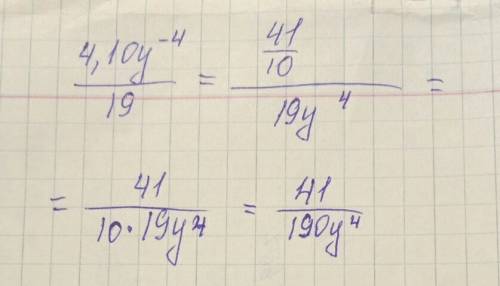 4,10y⁻⁴/19 = (41/10)/(19y⁴) =
= 41/(10·19y⁴) = 41/(190y⁴)